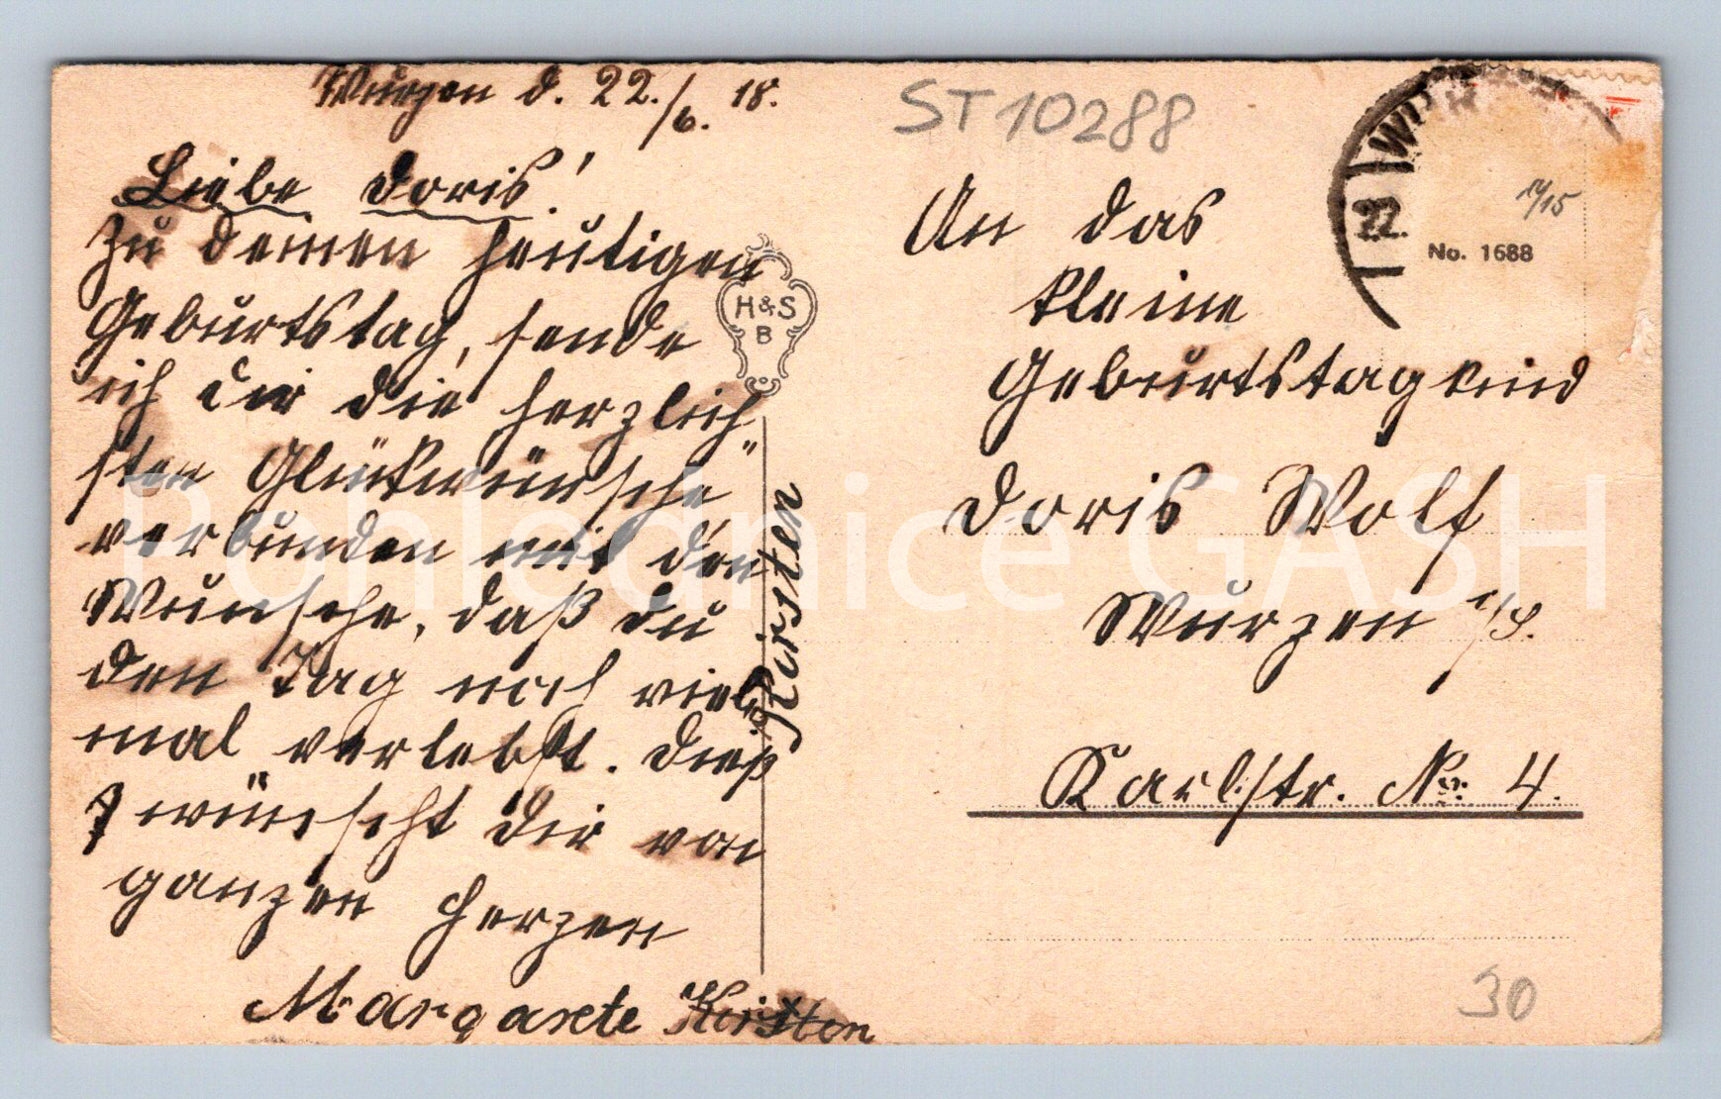 Wurzen d. 22./6. 18.
Liebe Doris!
Zu deinen heutigen
Geburtstag, sende
ich dir die herzlich"
sten Glückwünsche
verbunden mit den
Wunsche, daß du
den Tag noch viel
mal verlebst. Dieß
wünscht dir von
ganzen Herzen
Margarete Kirsten
Kirsten
H&S
B
ST10288
An das
kleine
Geburtstagkind
Doris Wolf
Wurzen i/S.
Karlstr. No. 4.
22.
No. 1688
30
Pohlednice GASH